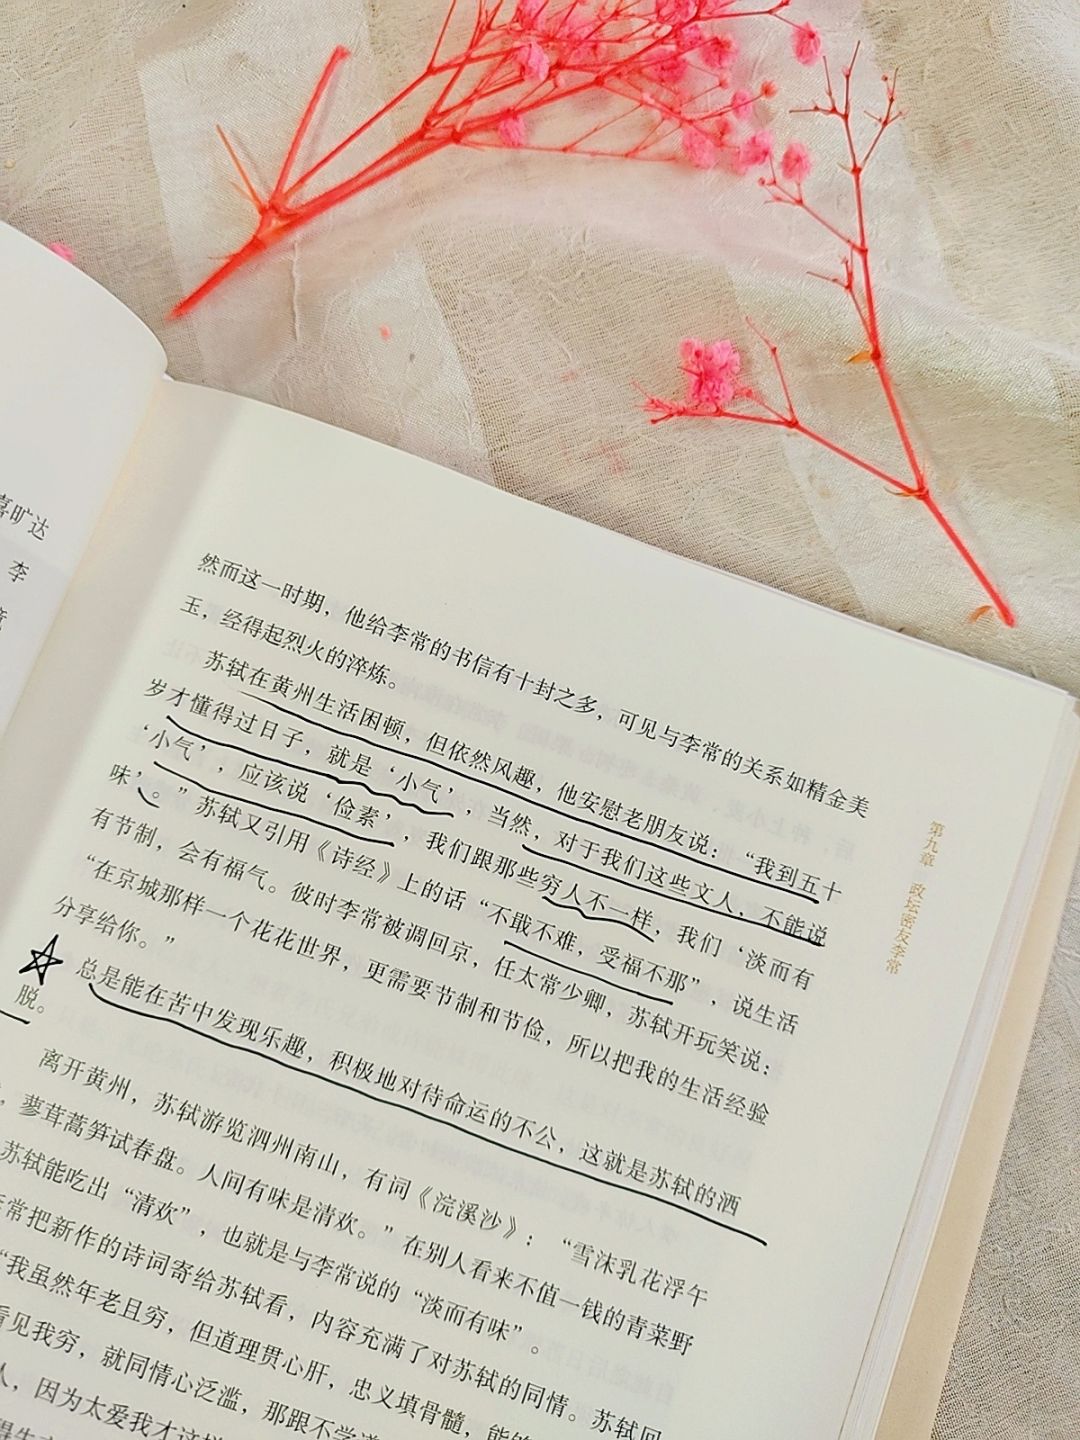 喜旷达
李
然而这一时期，他给李常的书信有十封之多，可见与李常的关系如精金美
玉，经得起烈火的淬炼。
苏轼在黄州生活困顿，但依然风趣，他安慰老朋友说：“我到五十
岁才懂得过日子，就是‘小气’，当然，对于我们这些文人，不能说
‘小气’，应该说‘俭素’，我们跟那些穷人不一样，我们‘淡而有
味’。”苏轼又引用《诗经》上的话“不戢不难，受福不那”，说生活
有节制，会有福气。彼时李常被调回京，任太常少卿，苏轼开玩笑说：
“在京城那样一个花花世界，更需要节制和节俭，所以把我的生活经验
分享给你。”
总是能在苦中发现乐趣，积极地对待命运的不公，这就是苏轼的洒
脱。
离开黄州，苏轼游览泗州南山，有词《浣溪沙》：“雪沫乳花浮午
，蓼茸蒿笋试春盘。人间有味是清欢。”在别人看来不值一钱的青菜野
苏轼能吃出“清欢”，也就是与李常说的“淡而有味”。
常把新作的诗词寄给苏轼看，内容充满了对苏轼的同情。苏轼回
“我虽然年老且穷，但道理贯心肝，忠义填骨髓，能
看见我穷，就同情心泛滥，那跟不学道
人，因为太爱我才这样
第九章 政坛密友李常